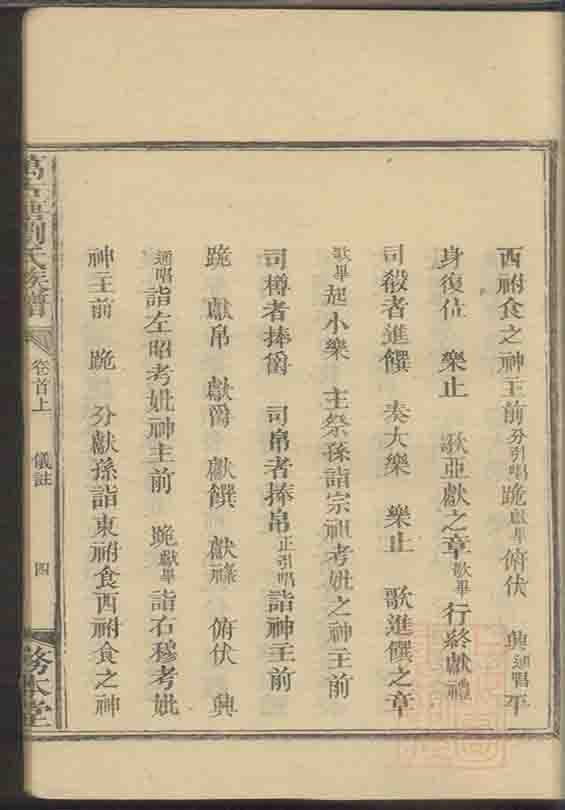 西祔食之神主前分引唱跪獻畢俯伏 興通唱平
身復位 樂止 歌亞獻之章歌畢行終獻禮
司殽者進饌 奏大樂 樂止 歌進饌之章
歌畢起小樂 主祭孫詣宗祖考妣之神主前
司樽者捧爵 司帛者捧帛正引唱詣神主前
跪 獻帛 獻爵 獻饌 獻祿 俯伏 興
通唱詣左昭考妣神主前 跪獻畢詣右穆考妣
神主前 跪 分獻孫詣東祔食西祔食之神
劉氏族譜
卷首上
儀註
四
務本堂